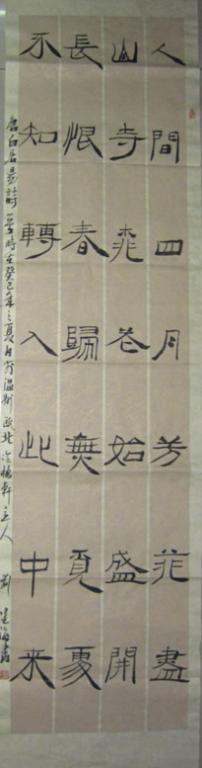 人間四月芳菲盡
山寺桃花始盛開
長恨春歸無覓處
不知轉入此中來
唐白居易詩一首時在癸巳年之夏月於溫州瓯北軒主人劉海書